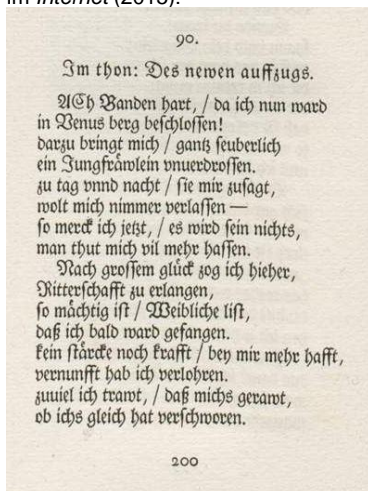 im Internet
90.
Im thon: Des newen auffzugs.
ACh Banden hart, / da ich nun ward
in Venus berg beſchloſſen!
darzu bringt mich / gantz ſeuberlich
ein Jungfräwlein vnuerdroſſen.
zu tag vnnd nacht / ſie mir zuſagt,
wolt mich nimmer verlaſſen —
ſo merck ich jetzt, / es wird ſein nichts,
man thut mich vil mehr haſſen.
Nach groſſem glück zog ich hieher,
Ritterſchafft zu erlangen,
ſo mächtig iſt / Weibliche liſt,
daß ich bald ward gefangen.
kein ſtärcke noch krafft / bey mir mehr hafft,
vernunfft hab ich verlohren.
zuuiel ich trawt, / daß michs gerawt,
ob ichs gleich hat verſchworen.
200